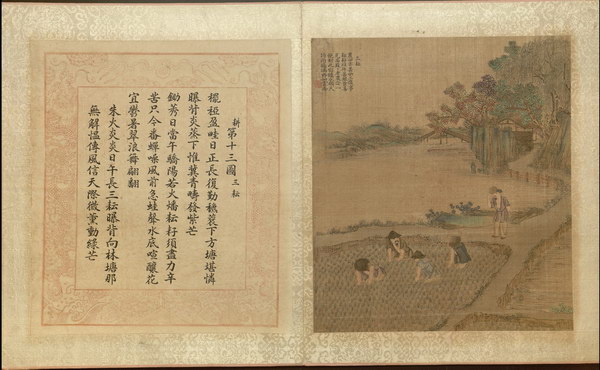 耕第十三圖 三耘
稏盈畦日正長復勤穮蓘下方塘堪憐
曝背炎蒸下惟冀青疇發紫芒
鋤莠日當午驕陽若火燔耘耔須盡力辛
苦只今番蟬噪風前急蛙聲水底喧釀花
宜鬱暑翠浪舞翩翻
朱火炎炎日午長三耘曝背向林塘那
無解慍傳風信天際微薰動綠芒
三耘